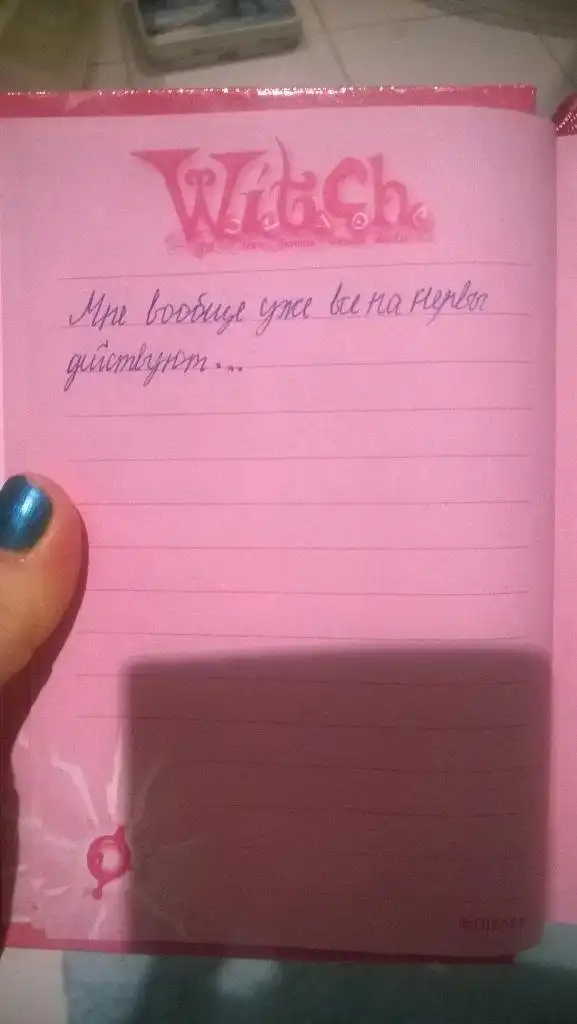 Witch
Мне вообще уже все на нервы
действуют...
©Disney